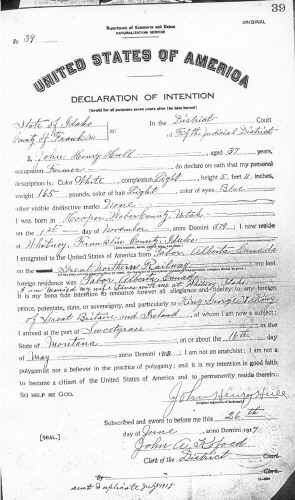 39
ORIGINAL
No 39
Department of Commerce and Labor
NATURALIZATION SERVICE
UNITED STATES OF AMERICA
DECLARATION OF INTENTION
(Invalid for all purposes seven years after the date hereof)
State of Idaho
County of Franklin
ss:
In the District Court
of Fifth Judicial District
I, John Henry Hull, aged 37 years,
occupation Farmer, do declare on oath that my personal
description is: Color White, complexion Light, height 5 feet 11 inches,
weight 165 pounds, color of hair Light, color of eyes Blue
other visible distinctive marks None
I was born in Hooper, Weber County, Utah
on the 1st day of November, anno Domini; I now reside
at Whitney, Franklin County, Idaho
I emigrated to the United States of America from Tabor, Alberta, Canada
on the Great Northern Railway; my last
foreign residence was Tabor, Alberta, Canada
It is my bona fide intention to renounce forever all allegiance and fidelity to any foreign
prince, potentate, state, or sovereignty, and particularly to King George V, King
of Great Britain and Ireland, of whom I am now a subject;
I arrived at the port of Sweetgrass
State of Montana, on or about the 16th day
of May, anno Domini; I am not an anarchist; I am not a
polygamist nor a believer in the practice of polygamy; and it is my intention in good faith
to become a citizen of the United States of America and to permanently reside therein:
SO HELP ME GOD.
John Henry Hull
Subscribed and sworn to before me this 26th
[SEAL.]
day of June, anno Domini 1917
John A.
Clerk of the District Court.
By, Clerk.
sent duplicate July 1917